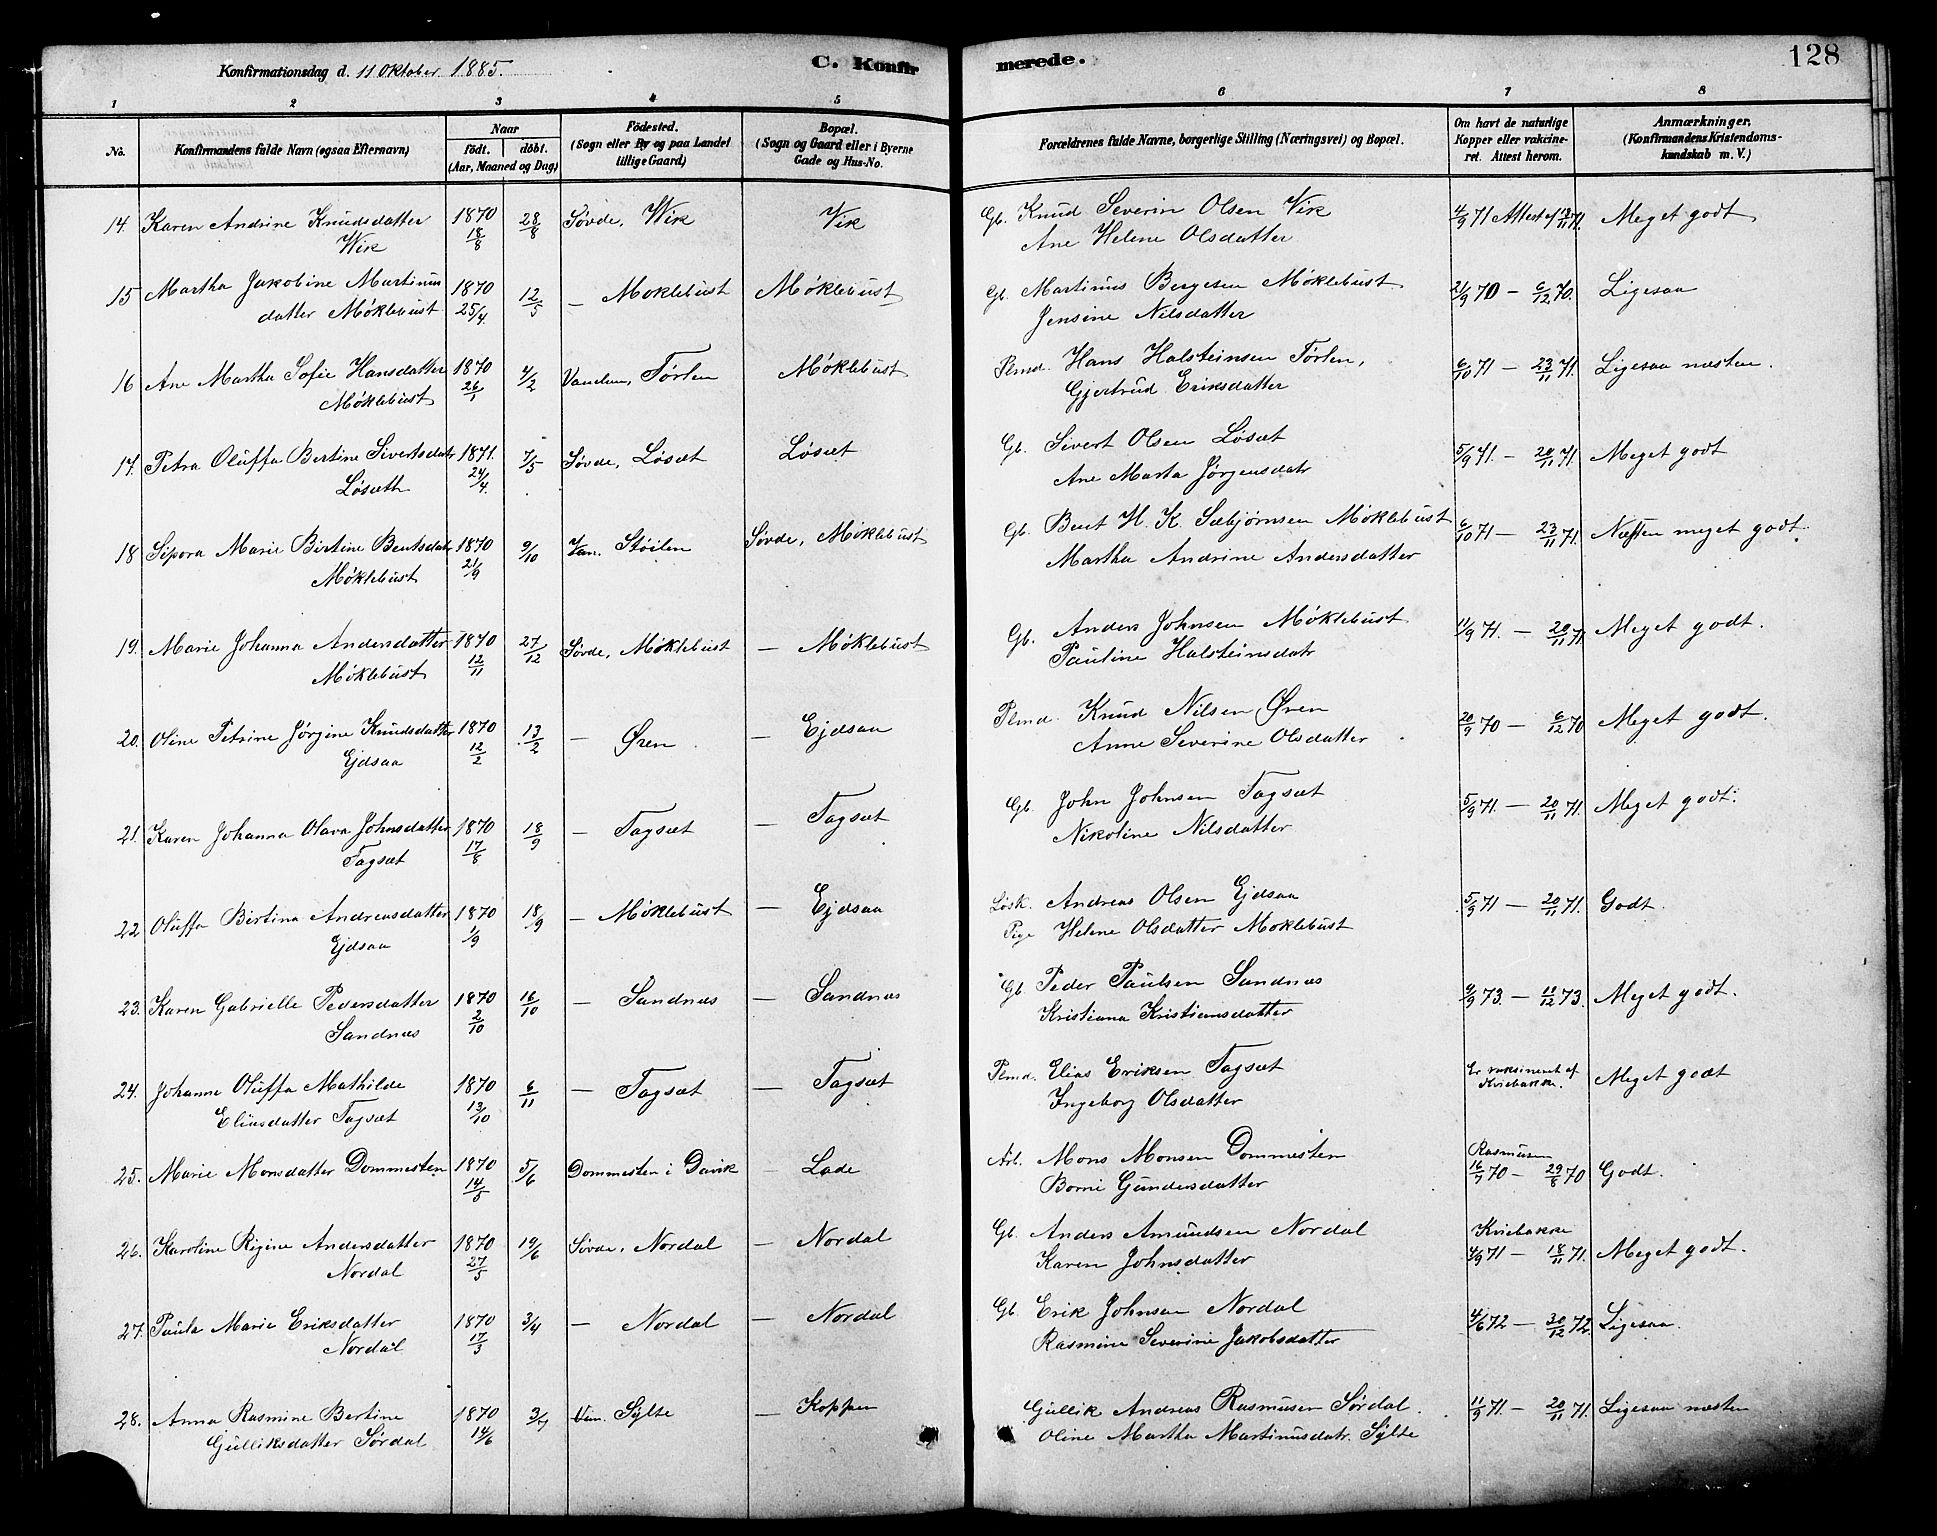 128
Konfirmationsdag d. 11 Oktober 1885.
C. Konfirmerede.
1 2 3 4 5 6 7 8
No.
Konfirmandens fulde Navn (ogsaa Efternavn)
Naar
födt. döbt.
(Aar, Maaned og Dag)
Födested.
(Sogn eller By og paa Landet
tillige Gaard)
Bopæl.
(Sogn og Gaard eller i Byerne
Gade og Hus-No.
Forældrenes fulde Navne, borgerlige Stilling (Næringsvei) og Bopæl.
Om havt de naturlige
Kopper eller vakcine-
ret. Attest herom.
Anmærkninger.
(Konfirmandens Kristendoms-
kundskab m. V.)
14. Karen Andrine Knudsdatter 1870 28/8 Søvde, Wik Vik Gb. Knud Severin Olsen Vik 4/9 71 Attest af 18/11 71. Meget godt
Wik 18/8 Ane Helene Olsdatter
15 Martha Jakobine Martinus 1870 12/5 — Moklebust Møklebust Gb. Martinus Bergesen Møklebust 21/9 70 — 6/12 70. Ligesaa
datter Møklebust 25/4. Jensine Nilsdatter
16 Ane Martha Sofie Hansdatter 1870 4/2 Vanelven, Tørlen Møklebust Plmd. Hans Halsteinsen Tørlen, 6/10 71 — 23/11 71. Ligesaa næsten.
Møklebust 26/1 Gjertrud Eriksdatter
17. Petra Oluffa Bertine Sivertsdatr 1871. 7/5 Søvde, Løsæt Løsæt Gb. Sivert Olsen Løsæt 5/9 71. — 20/11 71. Meget godt
Løsæth 24/4. Ane Marta Jørgensdatr
18 Sipora Marie Birtine Bentsdatr 1870 9/10 Van. Støilen Søvde, Møklebust Gb. Bent H. K. Sæbjørnsen Møklebust 6/10 71 — 23/11 71. Næsten meget godt.
Møklebust 21/9 Martha Andrine Andersdatter
19. Marie Johanna Andersdatter 1870 27/12 Søvde, Møklebust — Møklebust Gb. Anders Johnsen Møklebust 11/9 71. — 20/11 71 Meget godt.
Møklebust 12/11 Pauline Halsteinsdatr
20. Oline Petrine Jørgine Knudsdatter 1870 13/2 — Øren — Ejdsaa Plmd. Knud Nilsen Øren 20/9 70 — 6/12 70 Meget godt.
Ejdsaa 12/2 Anne Severine Olsdatter
21. Karen Johanna Olava Johnsdatter 1870 18/9 — Tagsæt — Tagsæt Gb. John Johnsen Tagsæt 5/9 71. — 20/11 71. Meget godt.
Tagsæt 17/8 Nikoline Nilsdatter
22 Oluffa Birtina Andreasdatter 1870 18/9 — Møklebust — Ejdsaa Løsk. Andreas Olsen Ejdsaa 5/9 71 — 20/11 71. Godt.
Ejdsaa 1/9 Pige Helene Olsdatter Moklebust
23. Karen Gabrielle Pedersdatter 1870 16/10 — Sandnæs — Sandnæs Gb. Peder Paulsen Sandnæs 9/9 73. — 11/12 73. Meget godt.
Sandnæs 2/10 Kristiana Kristiansdatter
24. Johanne Oluffa Mathilde 1870 6/11 — Tagsæt — Tagsæt Plmd. Elias Eriksen Tagsæt Er vaksineret af Meget godt
Eliasdatter Tagsæt 13/10 Ingeborg Olsdatter Kviebakke.
25. Marie Monsdatter Dommesten 1870 5/6 Dommesten i Davik — Lade Arb. Mons Monsen Dommesten Rasmusen Godt.
14/5 Borni Gundersdatter 16/7 70 — 29/8 70
26. Karoline Rigine Andersdatter 1870 19/6 Søvde, Nordal — Nordal Gb. Anders Amundsen Nordal Kviebakke
Nordal 27/5 Karen Johnsdatter 4/9 71 — 18/11 71. Meget godt.
27. Paula Marie Eriksdatter 1870 3/4 — Nordal — Nordal Gb. Erik Johnsen Nordal 4/6 72 — 30/12 72. Ligesaa.
Nordal 17/3 Rasmine Severine Jakobsdatter
28. Anna Rasmine Bertine 1870 3/7 Van. Sylte — Koppen Gullik Andreas Rasmusen Sørdal. 11/9 71. — 20/11 71. Ligesaa næsten
Gulliksdatter Sørdal 14/6 Oline Martha Martinusdatr. Sylte